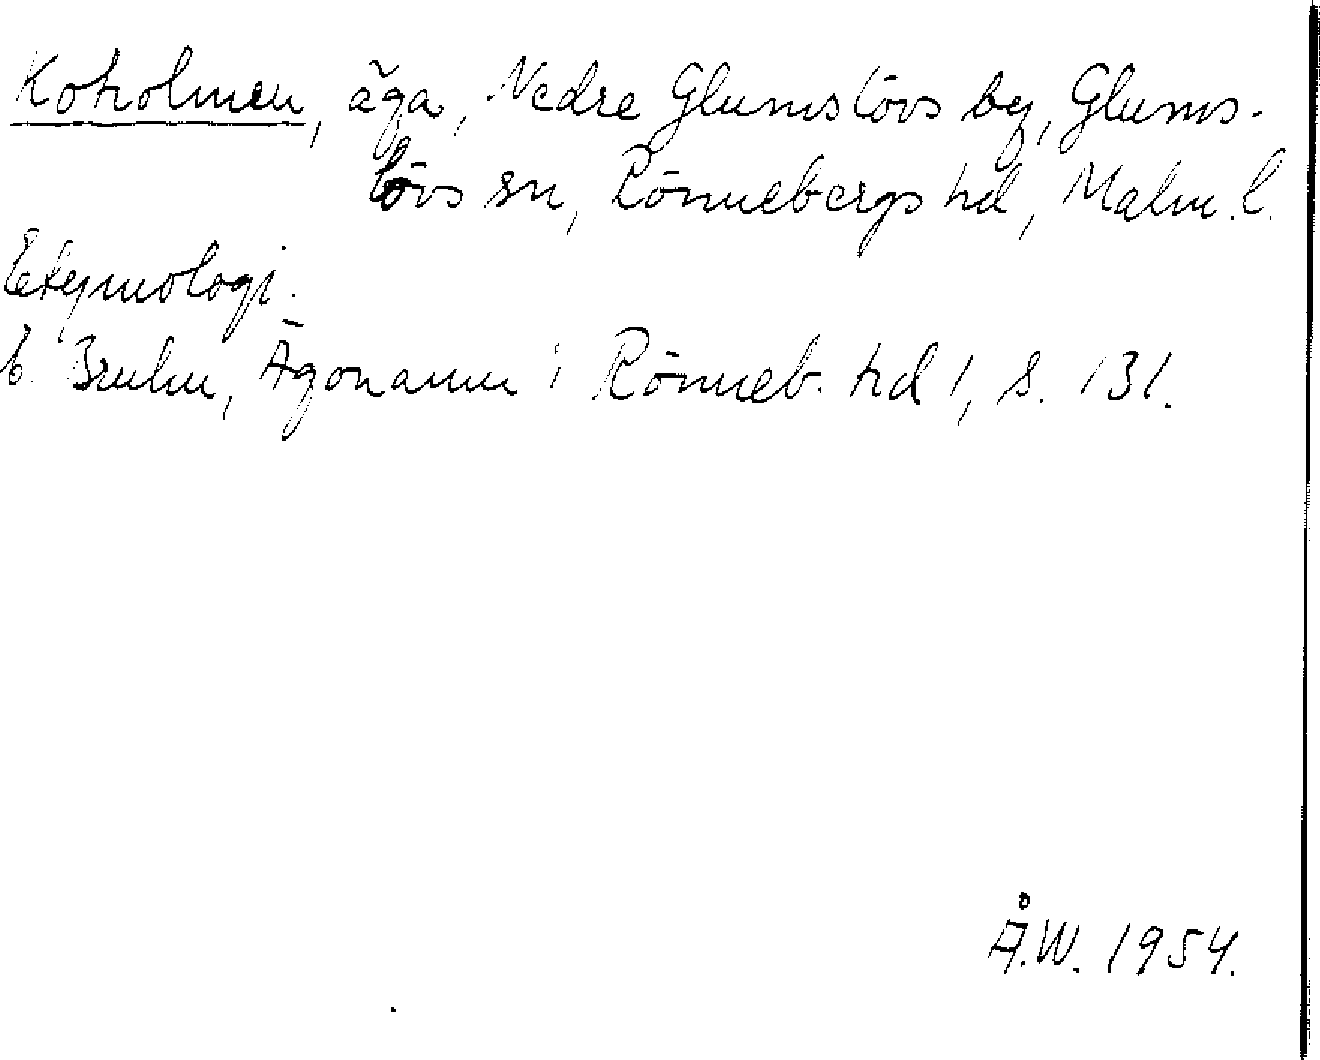 Koholmen, äga, Nedre Glumslövs by, Glums-
lövs sn, Rönnebergs hd, Malm. l.
Etymologi.
E. Bruhn, Ägonamn i Rönneb. hd 1, s. 131.
Å.W. 1954.